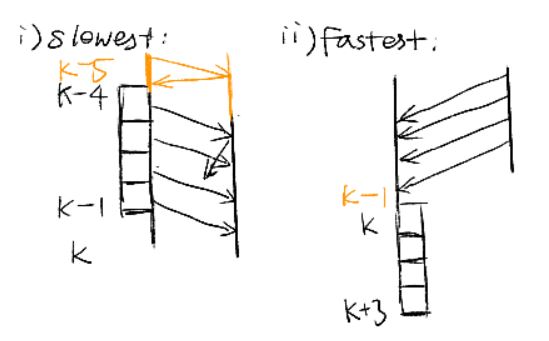 i) slowest:
k-5
k-4
k-1
k
ii) fastest:
k-1
k
k+3